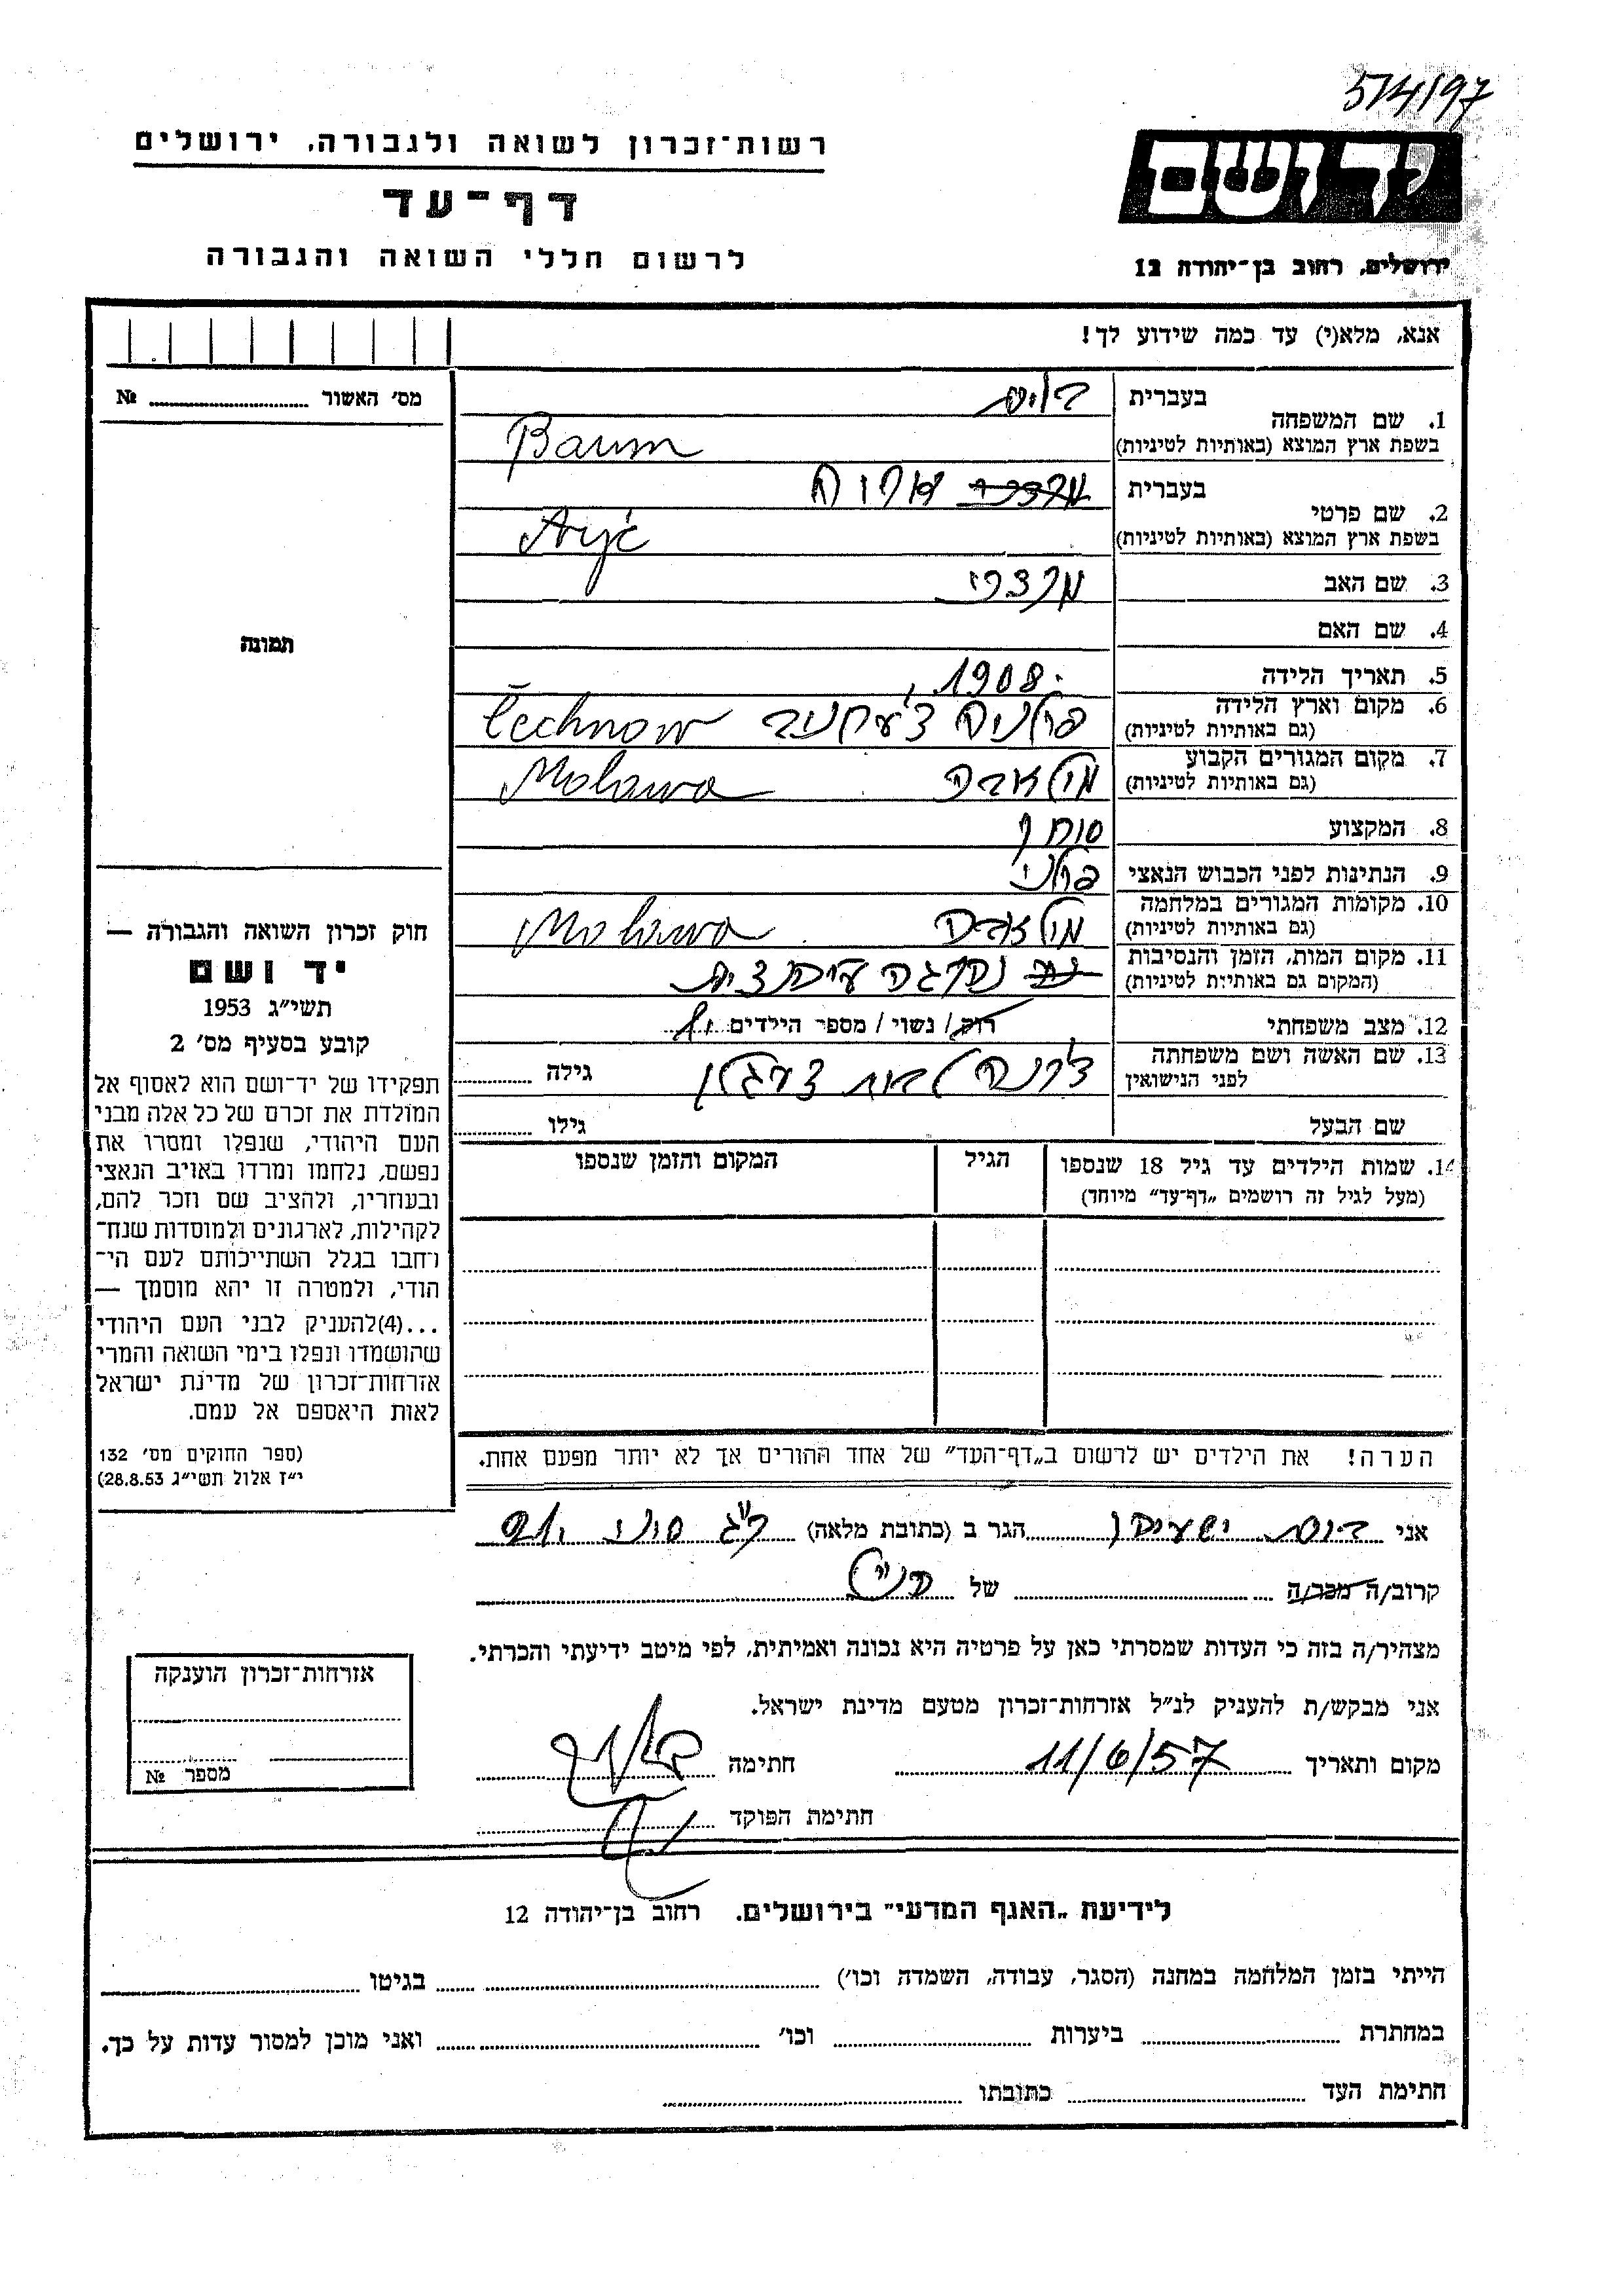 5/4/97
יד ושם
ירושלים, רחוב בן־יהודה 12
רשות־זכרון לשואה ולגבורה, ירושלים
דף־עד
לרשום חללי השואה והגבורה
אנא, מלא(י) עד כמה שידוע לך!
מס׳ האשור № 
1. שם המשפחה בעברית בוים
בשפת ארץ המוצא (באותיות לטיניות) Baum
2. שם פרטי בעברית אריה
בשפת ארץ המוצא (באותיות לטיניות) Arje
3. שם האב מרדכי
4. שם האם
5. תאריך הלידה 1908
6. מקום וארץ הלידה (גם באותיות לטיניות) פולניה צ׳עחנוב Cechnow
7. מקום המגורים הקבוע (גם באותיות לטיניות) מולאבה Molawa
8. המקצוע סוחר
9. הנתינות לפני הכבוש הנאצי פולני
10. מקומות המגורים במלחמה (גם באותיות לטיניות) מולאבה Molawa
11. מקום המות, הזמן והנסיבות (המקום גם באותיות לטיניות)
12. מצב משפחתי רוק/ נשוי/ מספר הילדים
13. שם האשה ושם משפחתה לפני הנישואין גילה
שם הבעל גילו
14. שמות הילדים עד גיל 18 שנספו הגיל המקום והזמן שנספו
(מעל לגיל זה רושמים „דף־עד״ מיוחד)
הערה! את הילדים יש לרשום ב„דף־העד״ של אחד ההורים אך לא יותר מפעם אחת.
תמונה
חוק זכרון השואה והגבורה —
יד ושם
תשי״ג 1953
קובע בסעיף מס׳ 2
תפקידו של יד־ושם הוא לאסוף אל
המולדת את זכרם של כל אלה מבני
העם היהודי, שנפלו ומסרו את
נפשם, נלחמו ומרדו באויב הנאצי
ובעוזריו, ולהציב שם וזכר להם,
לקהילות, לארגונים ולמוסדות שנח־
רחבו בגלל השתייכותם לעם הי־
הודי, ולמטרה זו יהא מוסמך —
...(4)להעניק לבני העם היהודי
שהושמדו ונפלו בימי השואה והמרי
אזרחות־זכרון של מדינת ישראל
לאות היאספם אל עמם.
(ספר החוקים מס׳ 132
י״ז אלול תשי״ג 28.8.53)
אני בוים הגר ב (כתובת מלאה)
קרוב/ה מכר/ה של
מצהיר/ה בזה כי העדות שמסרתי כאן על פרטיה היא נכונה ואמיתית, לפי מיטב ידיעתי והכרתי.
אני מבקש/ת להעניק לנ״ל אזרחות־זכרון מטעם מדינת ישראל.
מקום ותאריך 11/6/57 חתימה
חתימת הפוקד
אזרחות־זכרון הוענקה
מספר №
לידיעת „האגף המדעי״ בירושלים. רחוב בן־יהודה 12
הייתי בזמן המלחמה במחנה (הסגר, עבודה, השמדה וכו׳) בגיטו
במחתרת ביערות וכו׳ ואני מוכן למסור עדות על כך.
חתימת העד כתובתו